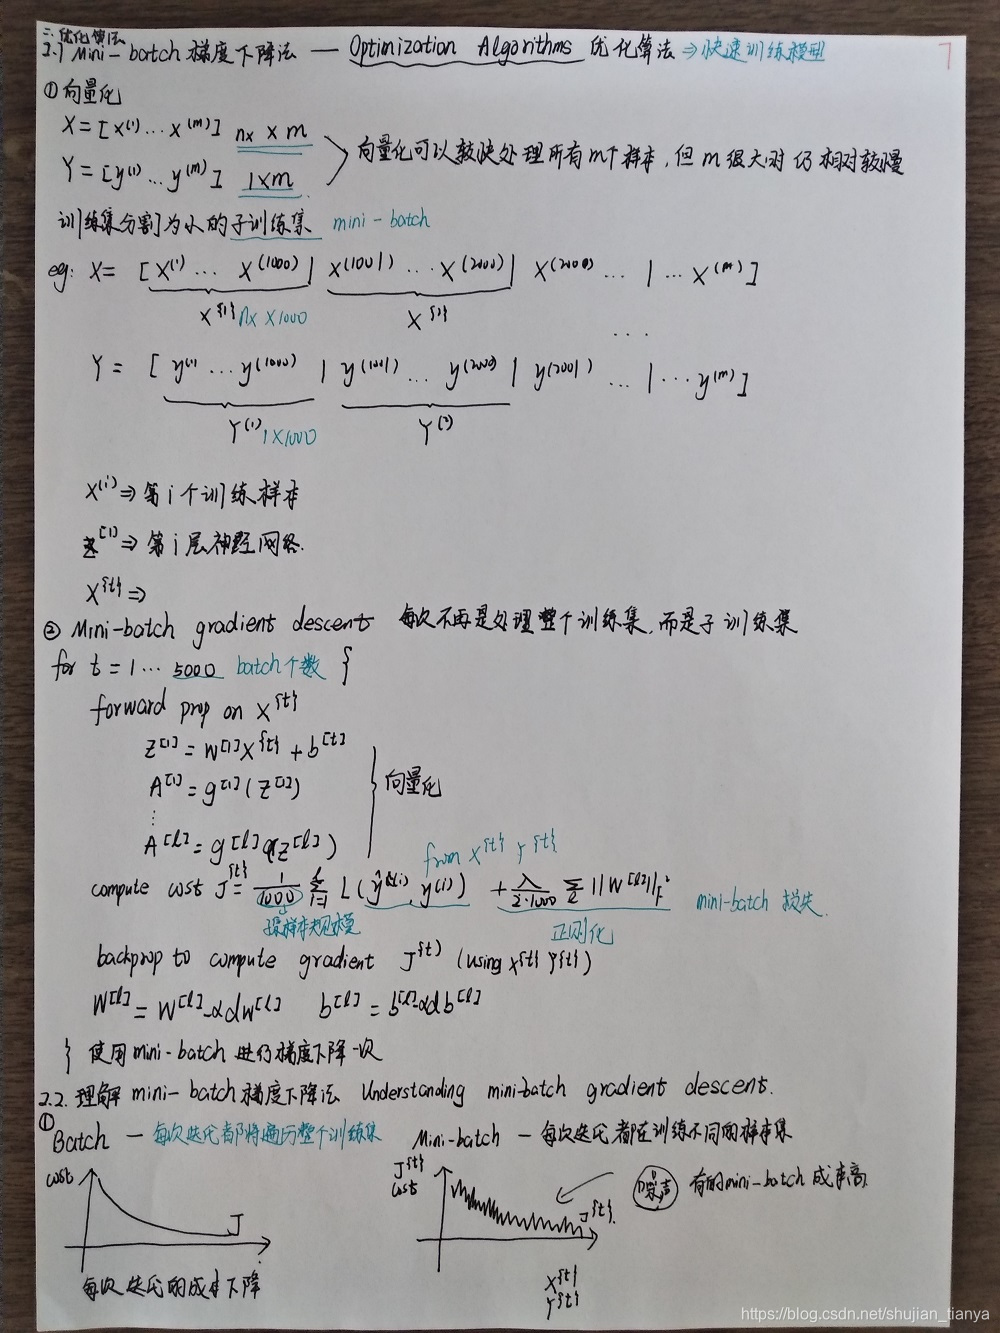 二.优化算法
2.1 Mini-batch 梯度下降法 — Optimization Algorithms 优化算法 ⇒ 快速训练模型
7
① 向量化
X = [x⁽¹⁾ ... x⁽ᵐ⁾] nx × m
Y = [y⁽¹⁾ ... y⁽ᵐ⁾] 1×m
向量化可以较快处理所有m个样本,但m很大时仍相对较慢
训练集分割为小的子训练集 mini-batch
eg: X = [x⁽¹⁾ ... x⁽¹⁰⁰⁰⁾ | x⁽¹⁰⁰¹⁾ ... x⁽²⁰⁰⁰⁾ | x⁽²⁰⁰⁰⁾ ... | ... x⁽ᵐ⁾]
X^{1} nx × 1000 X^{1} ...
Y = [y⁽¹⁾ ... y⁽¹⁰⁰⁰⁾ | y⁽¹⁰⁰¹⁾ ... y⁽²⁰⁰⁰⁾ | y⁽²⁰⁰¹⁾ ... | ... y⁽ᵐ⁾]
Y⁽¹⁾ 1×1000 Y⁽²⁾
X⁽ⁱ⁾ ⇒ 第i个训练样本
Z^[i] ⇒ 第i层神经网络.
X^{t} ⇒
② Mini-batch gradient descent 每次不再是处理整个训练集,而是子训练集
for t = 1 ... 5000 batch个数 {
forward prop on X^{t}
Z^[1] = W^[1] X^{t} + b^[t]
A^[1] = g^[1](Z^[1])
⋮
A^[l] = g^[l](Z^[l])
向量化
from X^{t} Y^{t}
compute cost J^{t} = 1/1000 Σ_{i=1} L(ŷ⁽ⁱ⁾, y⁽ⁱ⁾) + λ/2·1000 Σ_l ||W^[l]||_F² mini-batch 损失.
样本规模 正则化
backprop to compute gradient J^{t} (using X^{t} Y^{t})
W^[l] = W^[l] - αdW^[l] b^[l] = b^[l] - αdb^[l]
} 使用mini-batch 进行梯度下降一次
2.2. 理解 mini-batch 梯度下降法 Understanding mini-batch gradient descent.
①
Batch — 每次迭代都将遍历整个训练集
Mini-batch — 每次迭代都在训练不同的样本集
cost
J
每次迭代的成本下降
J^{t}
cost
J^{t}.
X^{t}
Y^{t}
噪声 有的mini-batch 成本高
https://blog.csdn.net/shujian_tianya